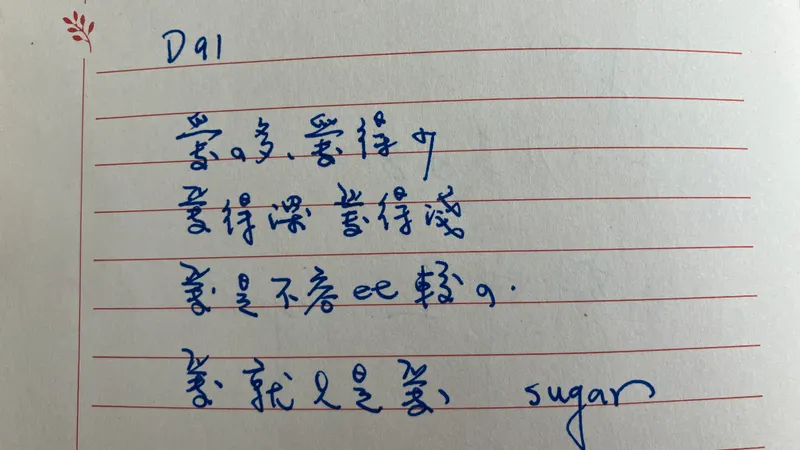 D91
愛的多、愛得少
愛得深 愛得淺
愛是不容比較的.
愛就只是愛、 sugar